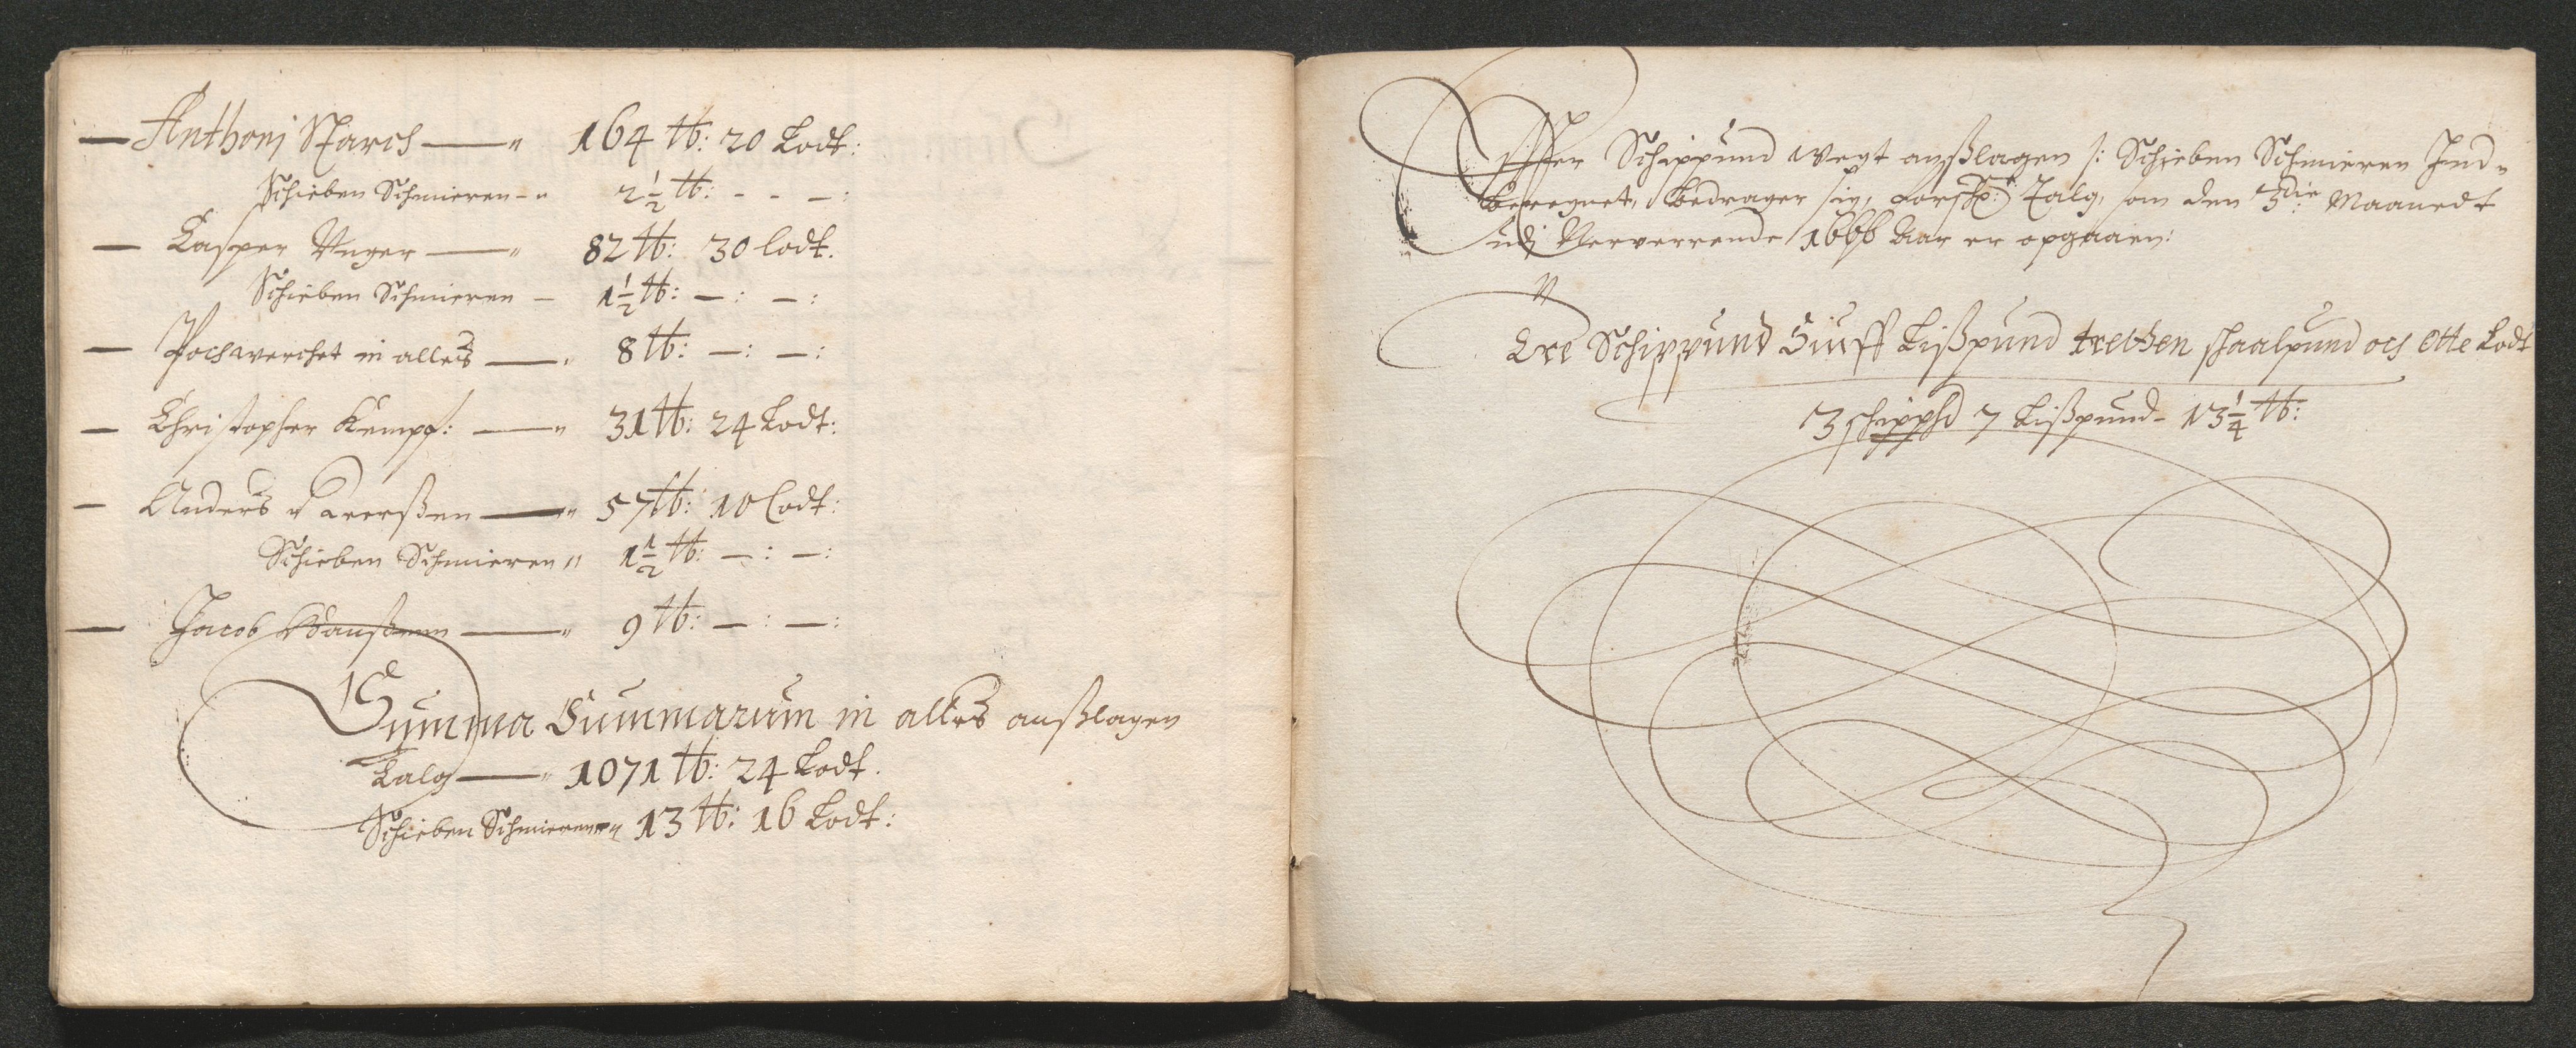 — Anthonj Starch — " 164 ℔: 20 Lodt:
Schieben Schmieren - " 2 1/2 ℔: - - -:
— Casper Unger — " 82 ℔: 30 lodt.
Schieben Schmieren — 1 1/2 ℔: —: —:
— Pochwerchet in alles — " 8 ℔: —: —:
— Christopher Kempf: — " 31 ℔: 24 Lodt:
— Anders — " 57 ℔: 10 Lodt:
Schieben Schmieren " 1 1/2 ℔: —: —:
— Jacob — " 9 ℔: —: —:
Summa Summarum in alles anßlagen
Talg — " 1071 ℔: 24 Lodt.
Schieben Schmieren " 13 ℔: 16 Lodt:
Effter Schippund wegt anßlagen /: Schieben Schmieren Ind-
beregnet, bedrager sig, Talg, som den 3die Maanedt
udj Nerverrende 1666 Aar er opgaaen:
Tre Schippund Siuff Lißpund tretten skaalpund och Otte Lodt
3 schippd 7 Lißpund - 13 1/4 ℔: